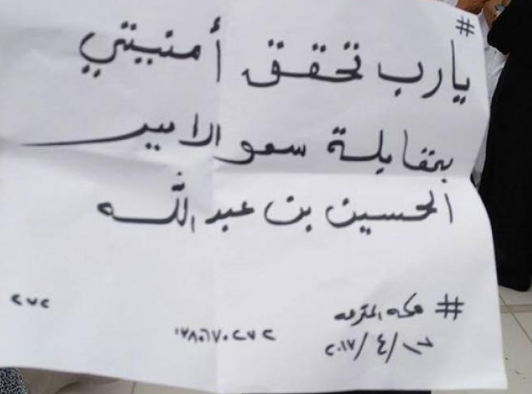 #
يارب تحقق أمنيتي
بمقابلة سمو الامير
الحسين بن عبدالله
# مكه المكرمه
٢٠١٧/٤/